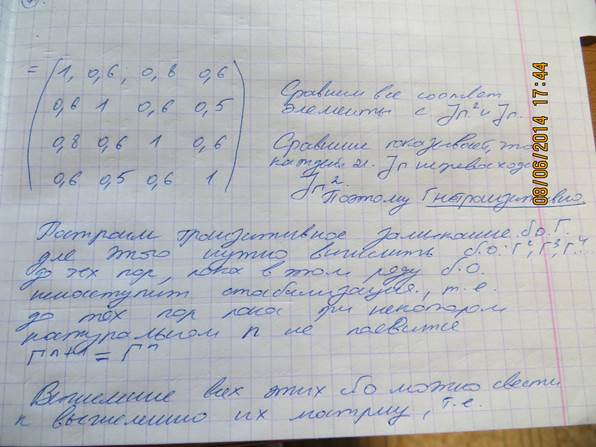 = ( 1, 0,6, 0,8 0,6
0,6 1 0,6 0,5
0,8 0,6 1 0,6
0,6 0,5 0,6 1 )
Сравним все соответ
элементы с Jг² и Jг.
Сравние показывает, что
Jг
Jг².
Поэтому Г нетранзитивно
08/06/2014 17:44
Построим транзитивное замыкание б.о. Г.
для этого нужно вычислить б.о. Г², Г³, Г⁴...
до тех пор, пока в этом ряду б.о.
не наступит стабилизация, т.е.
до тех пор пока при некотором
натуральном n не появится
Гⁿ⁺¹ = Гⁿ
Вычисление всех этих бо можно свести
к вычислению их матриц, т.е.